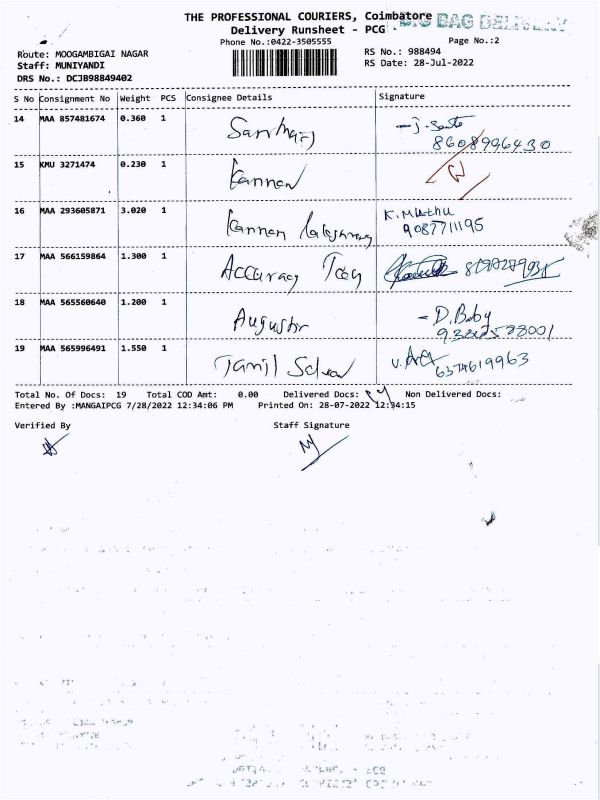 THE PROFESSIONAL COURIERS, Coimbatore
BIG BAG DELIVERY
Delivery Runsheet - PCG
Phone No.:0422-3505555
Page No.:2
Route: MOOGAMBIGAI NAGAR
RS No.: 988494
Staff: MUNIYANDI
RS Date: 28-Jul-2022
DRS No.: DCJB98849402
S No Consignment No Weight PCS Consignee Details Signature
14 MAA 857481674 0.360 1
8608996430
15 KMU 3271474 0.230 1 Kannan
16 MAA 293605871 3.020 1 Kannan K. Muthu
9087711195
17 MAA 566159864 1.300 1 Accuracy
18 MAA 565560640 1.200 1 Augustin - D. Baby
19 MAA 565996491 1.550 1 Tamil
6374619963
Total No. Of Docs: 19 Total COD Amt: 0.00 Delivered Docs: Non Delivered Docs:
Entered By :MANGAIPCG 7/28/2022 12:34:06 PM Printed On: 28-07-2022 12:34:15
Verified By Staff Signature